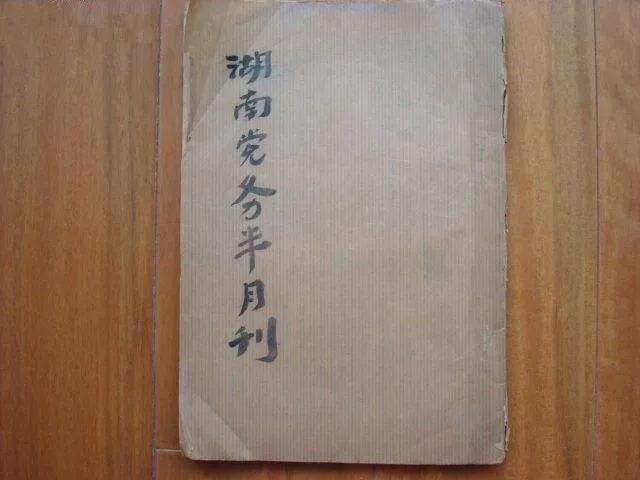 湖南党务半月刊